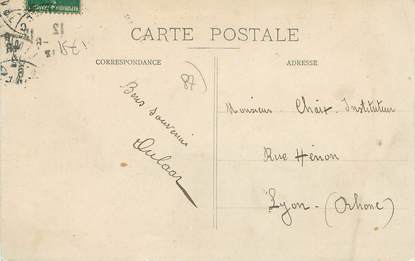 CARTE POSTALE
CORRESPONDANCE
ADRESSE
87
Bons souvenirs
Monsieur Chaix. Instituteur
Rue Hénon
Lyon - (Rhône)